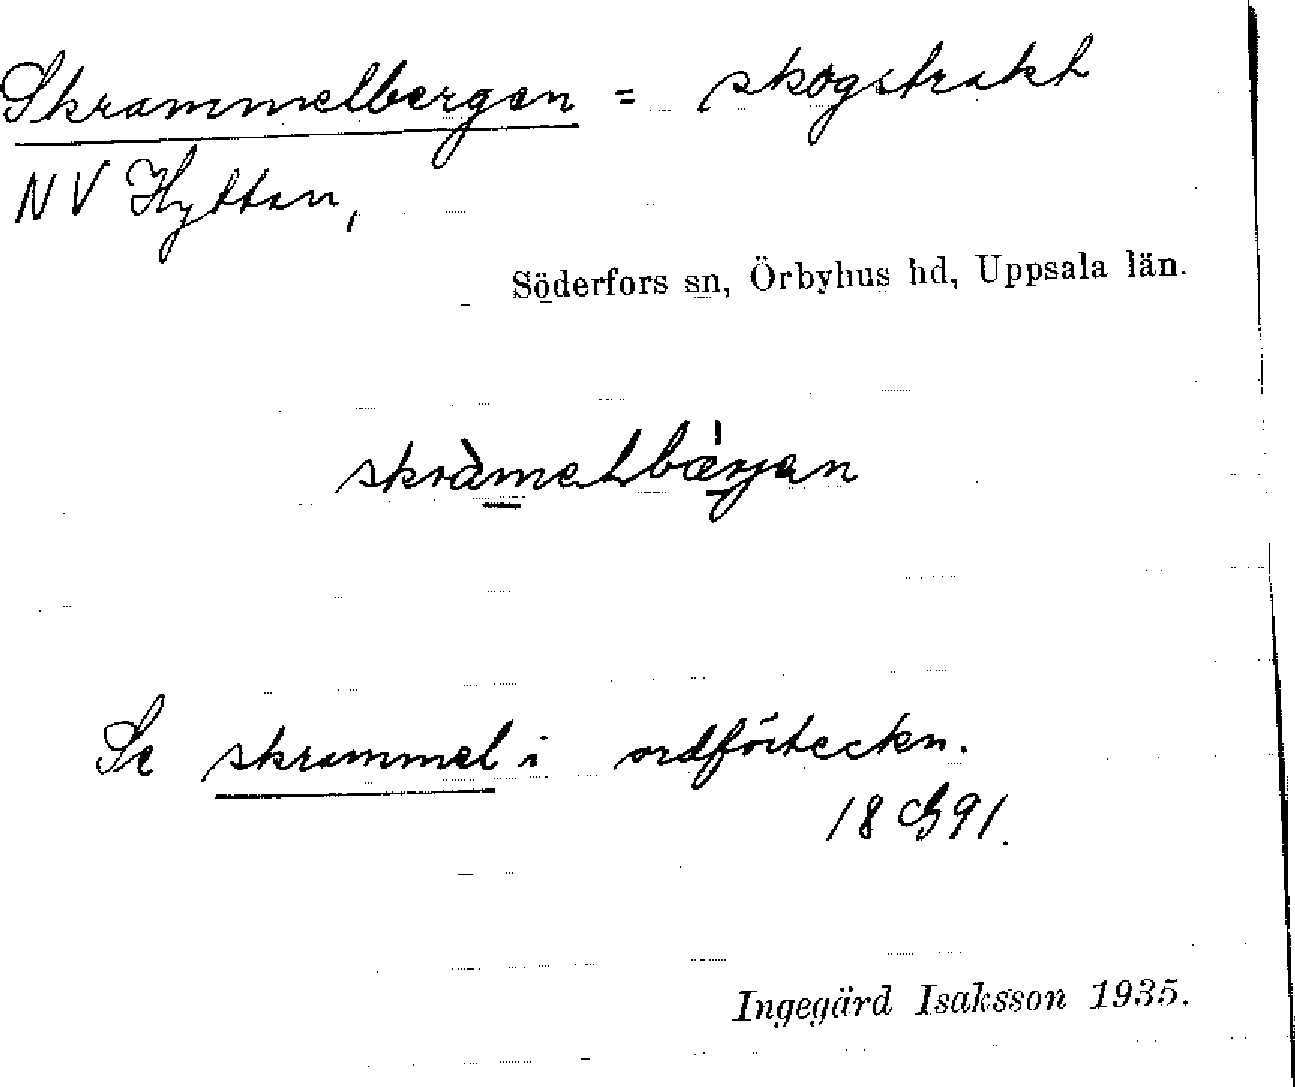 Skrammelbergen = skogstrakt
NV Hyttan,
Söderfors sn, Örbyhus hd, Uppsala län.
skràmelbærjan
Se skrammel i ordförteckn.
18 91.
Ingegärd Isaksson 1935.